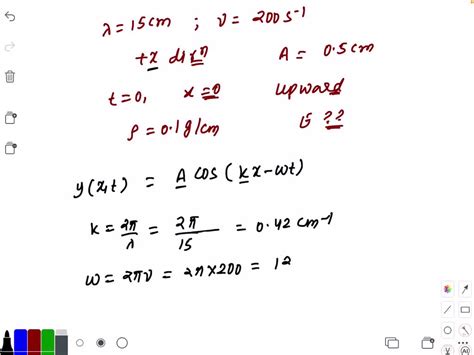 λ = 15cm ; ν = 200 s⁻¹
+x dirⁿ A = 0.5cm
t=0, x=0 upward
ρ = 0.1g/cm ??
y(x,t) = A cos (kx-ωt)
k = 2π/λ = 2π/15 = 0.42 cm⁻¹
ω = 2πν = 2π×200 = 12